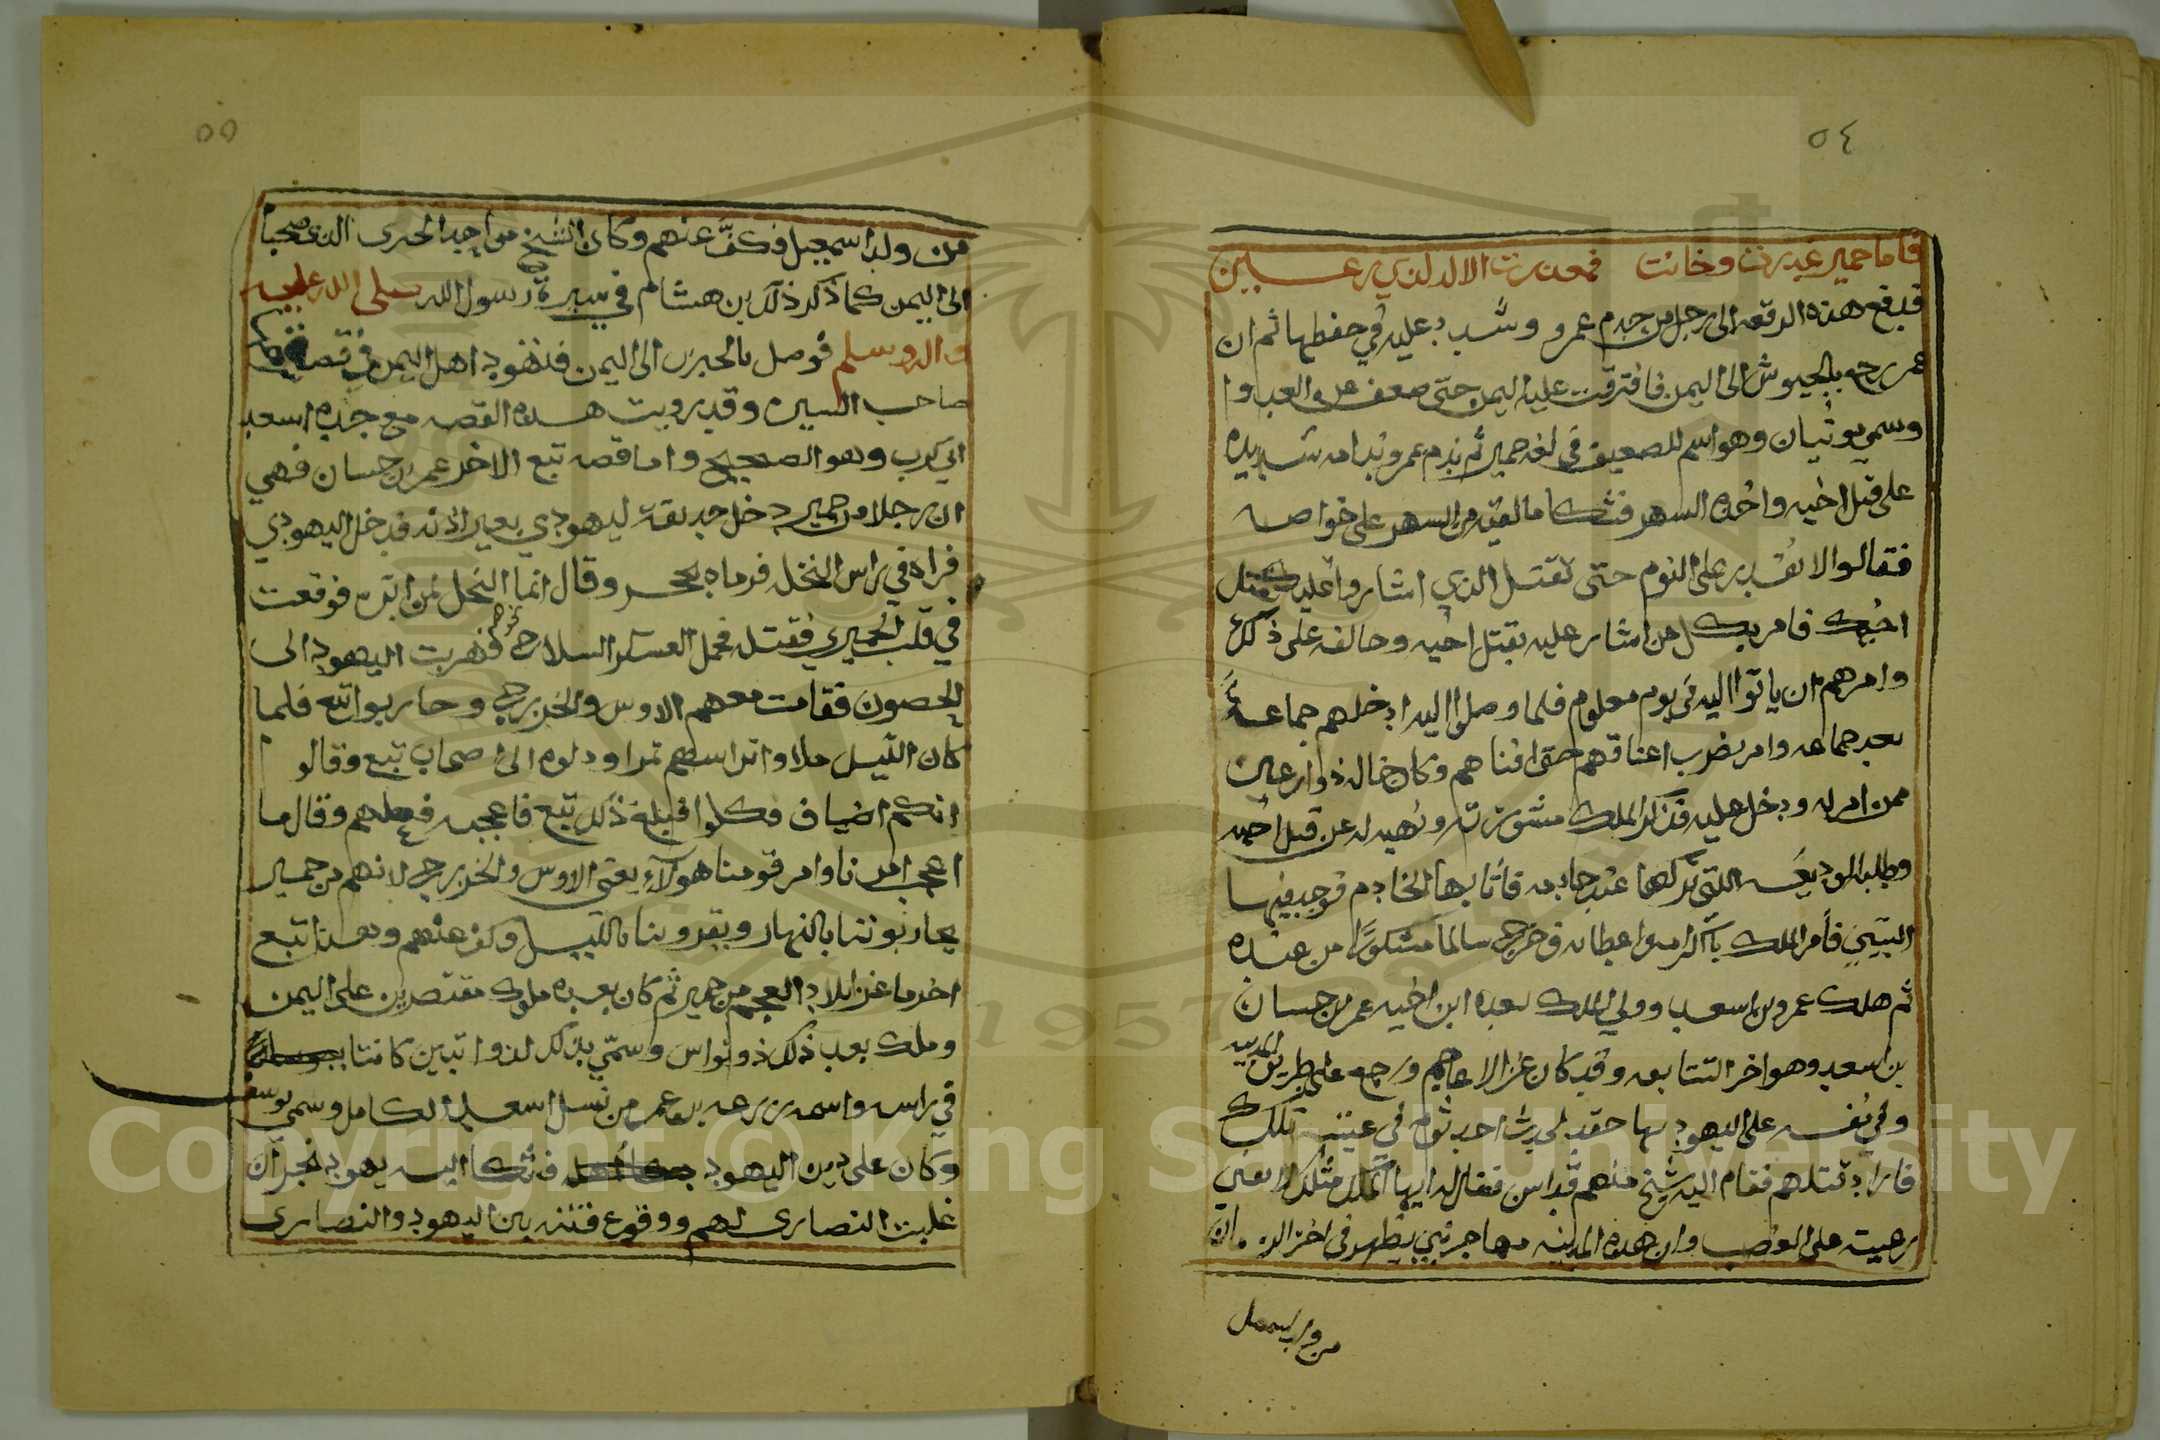 ٥٤
فاما حمير غدرت وخانت فمعذرت الاله لذي رعين
فدفع هذه الرقعه الى رجل من خدم عمرو وشدد عليه في حفظها ثم ان
عمر رجع بالجيوش الى اليمن فافترقت عليه اليمن حتى ضعف عن العدوا
وسمي موثبان وهو اسم للضعيف في لغة حمير ثم ندم عمرو ندامه شديده
على قتل اخيه واخذه السهر فشكا ما لقيه من السهر على خواصه
فقالوا لا تقدر على النوم حتى تقتل الذي اشاروا عليك بقتل
اخيك فامر بكل من اشار عليه بقتل اخيه وحالفه على ذلك
وامرهم ان ياتوا اليه في يوم معلوم فلما وصلوا اليه ادخلهم جماعةً
بعد جماعه وامر بضرب اعناقهم حتى افناهم وكان خاله ذوارعين
ممن امر له ودخل عليه فذكر الملك مشورته ونهيه له عن قتل اخيه
وطلب الوديعه التي تركها عند خادمه فأتا بها الخادم فوجد فيها
البيتين فأمر الملك بأكرامه واعطائه فخرج سالماً مشكوراً من عنده
ثم هلك عمرو بن اسعد وولي الملك بعده ابن اخيه عمر بن حسان
بن اسعد وهو اخر التتابعه وقد كان غزا الاعاجم ورجع على طريق المدينه
وفي نفسه على اليهود بها حقد لحديث احدثوه في غيبته تلك
فاراد قتلهم فقام اليه شيخ منهم قد اسن فقال له ايها الملك مثلك لا يعين
رعيته على الغضب وان هذه المدينه مهاجر نبي يظهر في اخر الزمان
من ولد اسمعيل
٥٥
من ولد اسمعيل فكف عنهم وكان الشيخ هو احد الحبرين الذي صحبا
الى اليمن كما ذكر ذلك بن هشام في سيرة رسول الله صلى الله عليه
واله وسلم فوصل بالحبرين الى اليمن فتهود اهل اليمن في قصة ذكرها
صاحب السيره وقد رويت هذه القصه مع جده اسعد
ابي كرب وهو الصحيح واما قصه تبع الاخر عمر بن حسان فهي
ان رجلا من حمير دخل حديقة ليهودي بغير اذنه فدخل اليهودي
فراه في راس النخله فرماه بحجر وقال انما النخل لمن ابره فوقعت
في قلب الحميري فقتله فحمل العسكر السلاح نحوهم فهربت اليهود الى
الحصون فقامت معهم الاوس والخزرج وحاربوا تبع فلما
كان الليل ملاوا اتراسهم تمرا ودلوه الى اصحاب تبع وقالوا
انكم اضياف فكلوا فبلغ ذلك تبع فاعجبه فعلهم وقال ما
اعجب امرنا وامر قومنا هولآء يعني الاوس والخزرج لانهم من حمير
يحاربوننا بالنهار ويقروننا بالليل وكف عنهم وهذا تبع
اخر ما غزا بلاد العجم من حمير ثم كان بعده ملوك مقتصرين على اليمن
وملك بعد ذلك ذو نواس وسمي بذلك لذوابتين كانتا
في راسه واسمه زرعه بن عمر من نسل اسعد الكامل وسمي يوسف
وكان على دين اليهود فشكا اليه يهود نجران
غلبت النصارى لهم ووقوع فتنه بين اليهود والنصارى